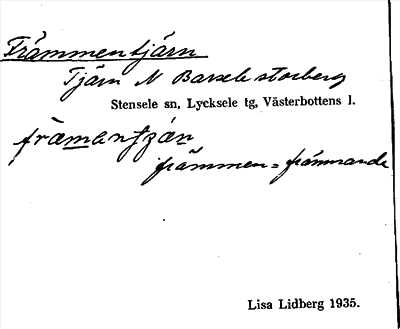 Främmentjärn
Tjärn N Barselestorberg
Stensele sn, Lycksele tg, Västerbottens l.
främmen = främmande
Lisa Lidberg 1935.